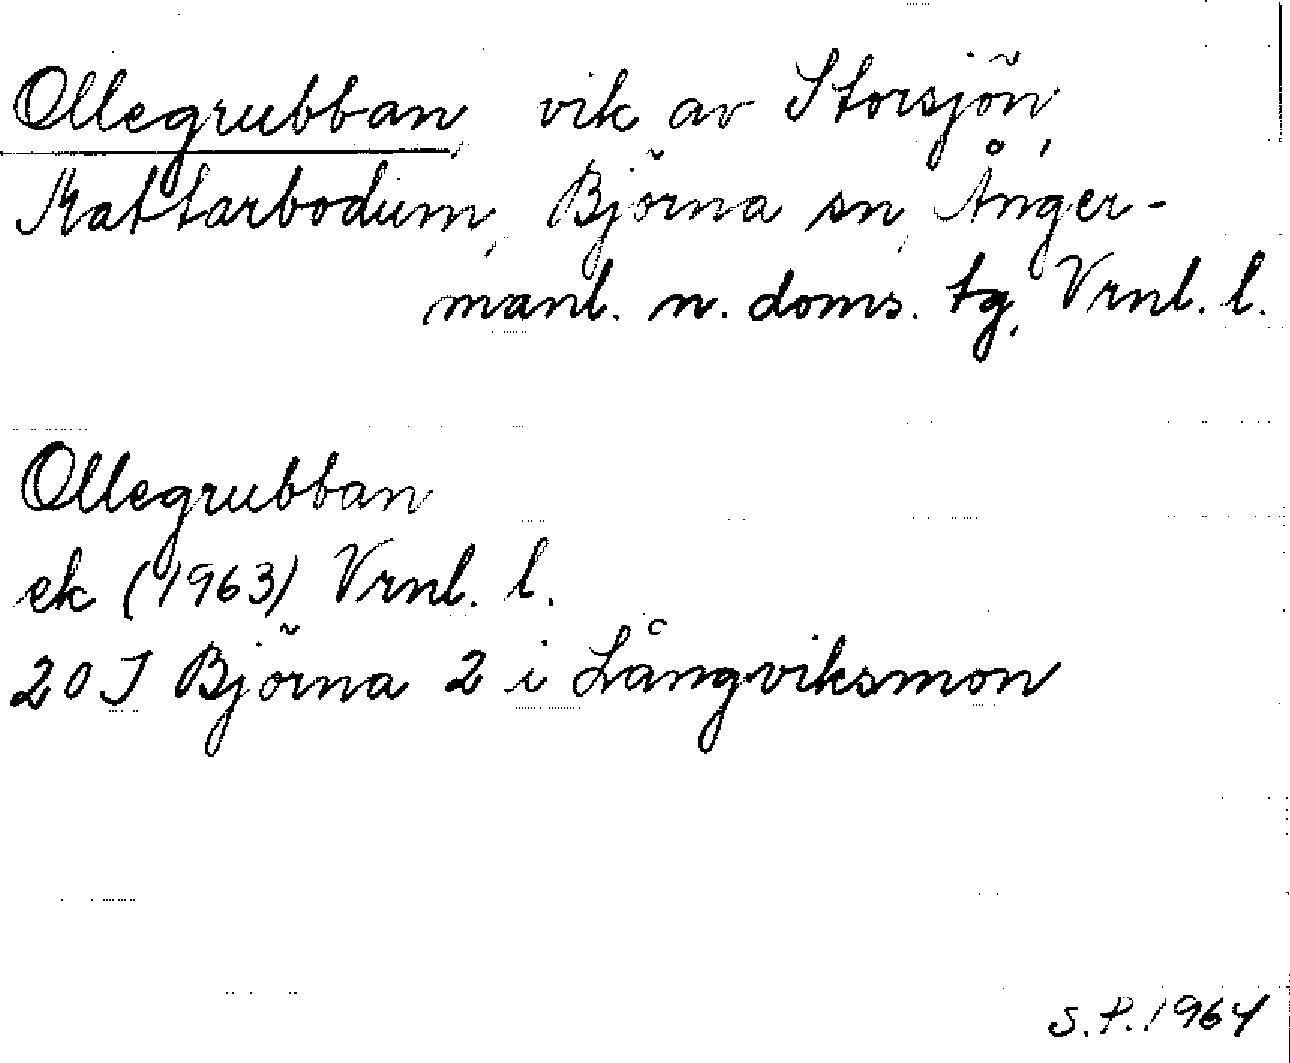 Ollegrubban, vik av Storsjön,
Kattarbodum, Björna sn, Ånger-
manl. n. doms. tg, Vrnl. l.
Ollegrubban
ek (1963) Vrnl. l.
20 I Björna 2 i Långviksmon
S.P. 1964